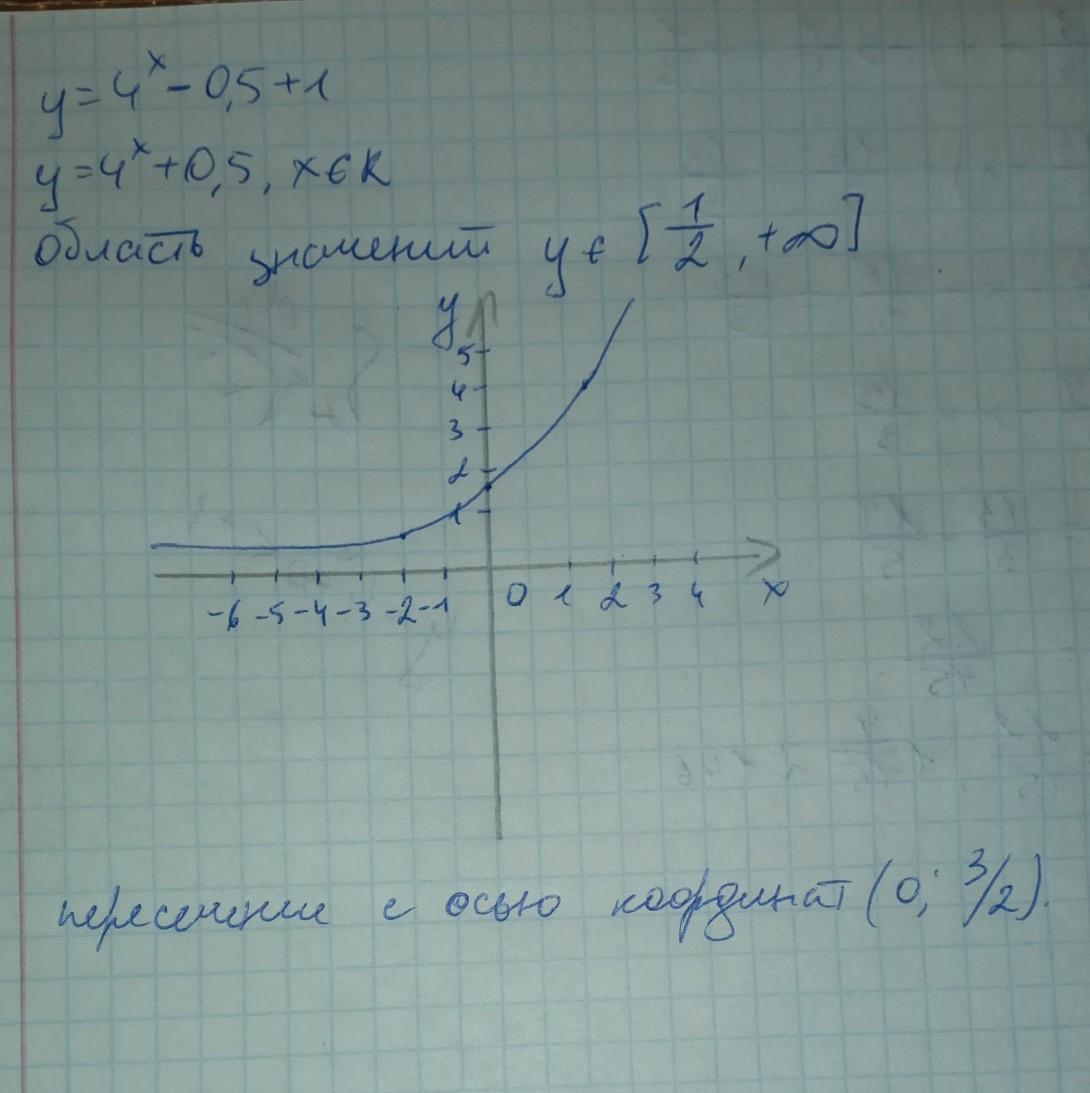 y=4^x-0,5+1
y=4^x+0,5, x∈R
область значений y∈[1/2, +∞]
y
5
4
3
2
1
-6 -5 -4 -3 -2 -1 0 1 2 3 4 x
пересечение с осью координат (0; 3/2).